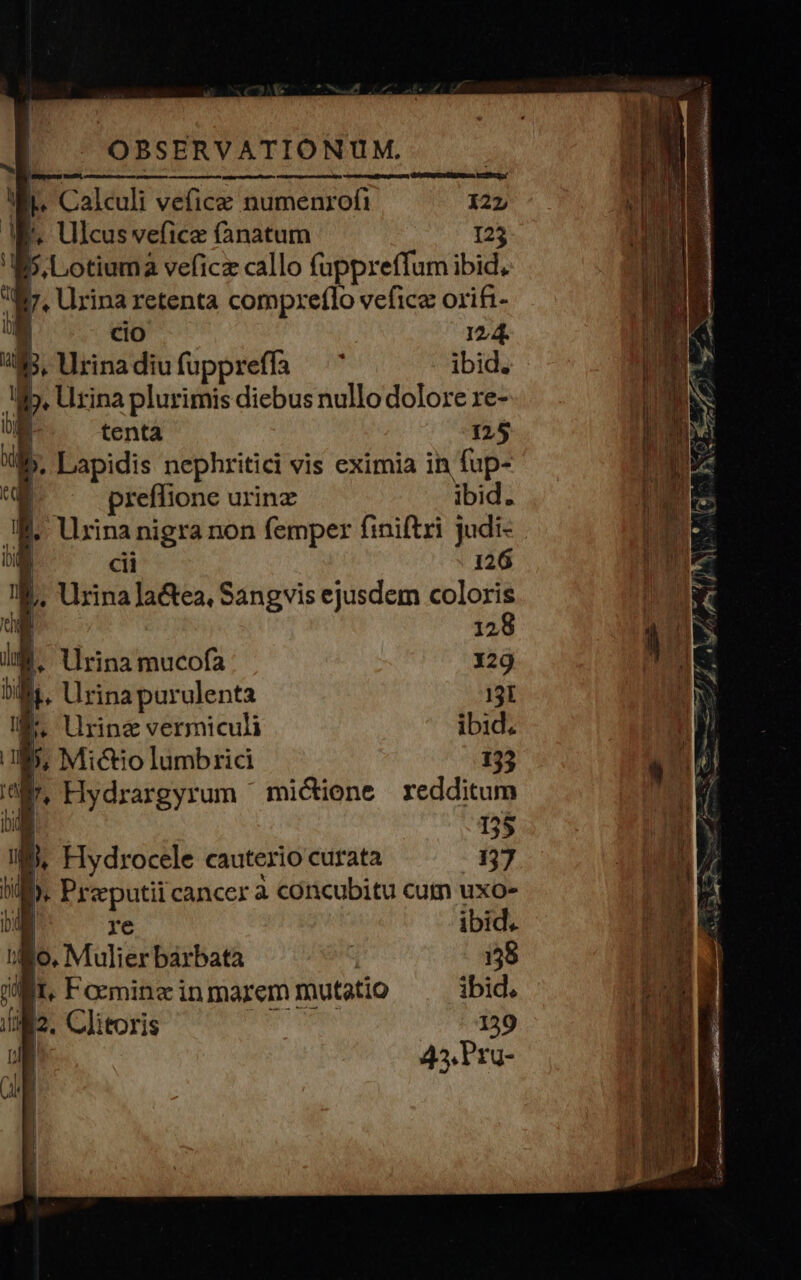 OBSERVATIONUM.
Calculi veſicæ numenroſi 122
Ulcus veſicæ ſanatum 123
Lotium à veſicæ callo ſuppreſſum ibid.
7, Urina retenta compreſſo veſicæ orifi-
cio 124
Urina diu ſuppreſſa ibid.
Urina plurimis diebus nullo dolore re-
tenta 125
Lapidis nephritici vis eximia in ſup-
preſſione urinæ ibid.
Urina nigra non ſemper ſiniſtri judi-
cii 126
Urina lactea, Sangvis ejusdem coloris
128
Urina mucoſa 129
Urina purulenta 131
Urinæ vermiculi ibid.
Mictio lumbrici 133
Hydrargyrum mictione redditum
135
Hydrocele cauterio curata 137
Præputii cancer à concubitu cum uxo-
re ibid.
0, Mulier barbata 138
1, Fœminæ in marem mutatio ibid.
2. Clitoris 139
43. Pru-